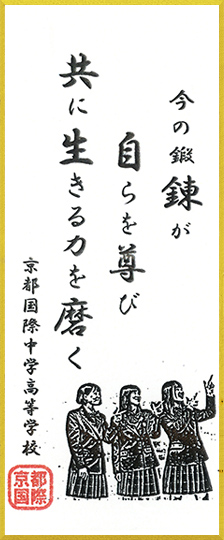 今の鍛錬が
自らを尊び
共に生きる力を磨く
京都国際中学高等学校
京都国際